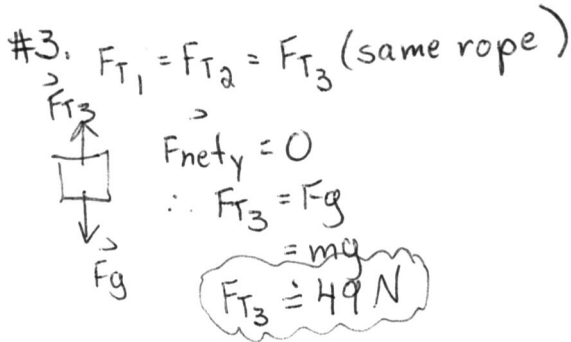 #3. FT1 = FT2 = FT3 (same rope)
FT3
Fnety = 0
∴ FT3 = Fg
= mg
Fg
FT3 ≐ 49 N